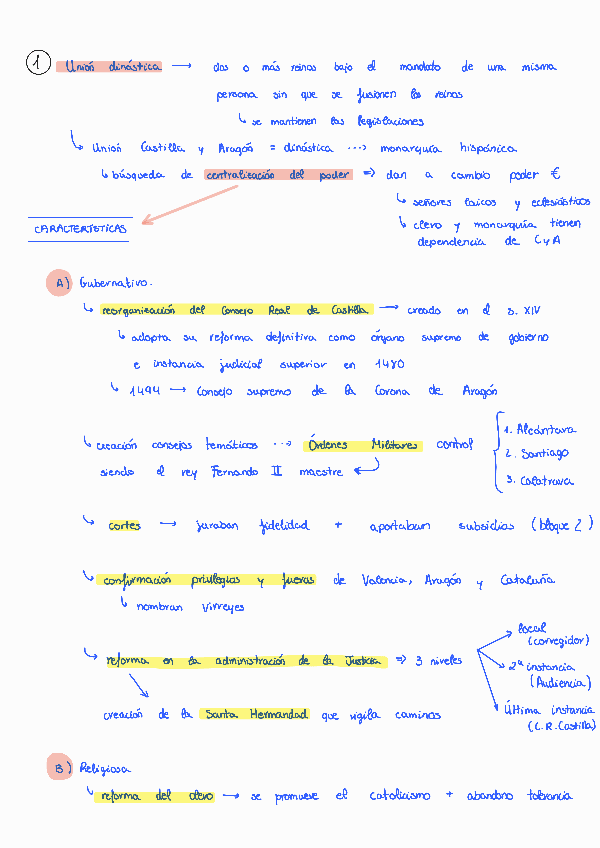 1 Unión dinástica → dos o más reinos bajo el mandato de una misma
persona sin que se fusionen los reinos
↳ se mantienen las legislaciones
↳ Unión Castilla y Aragón = dinástica ···> monarquía hispánica.
↳ búsqueda de centralización del poder => dan a cambio poder €
↳ señores laicos y eclesiásticos
↳ clero y monarquía tienen
dependencia de C y A
CARACTERÍSTICAS
A) Gubernativo.
↳ reorganización del Consejo Real de Castilla → creado en el s. XIV
↳ adopta su reforma definitiva como órgano supremo de gobierno
e instancia judicial superior en 1480
↳ 1494 → Consejo supremo de la Corona de Aragón
↳ creación consejos temáticos ···> Órdenes Militares control
siendo el rey Fernando II maestre
1. Alcántara
2. Santiago
3. Calatrava
↳ cortes → juraban fidelidad + aportaban subsidios (bloque 2)
↳ confirmación privilegios y fueros de Valencia, Aragón y Cataluña
↳ nombran Virreyes
↳ reforma en la administración de la Justicia => 3 niveles
local
(corregidor)
2ª instancia
(Audiencia)
Última instancia
(C.R.Castilla)
creación de la Santa Hermandad que vigila caminos
B) Religiosa
↳ reforma del clero → se promueve el catolicismo + abandono tolerancia